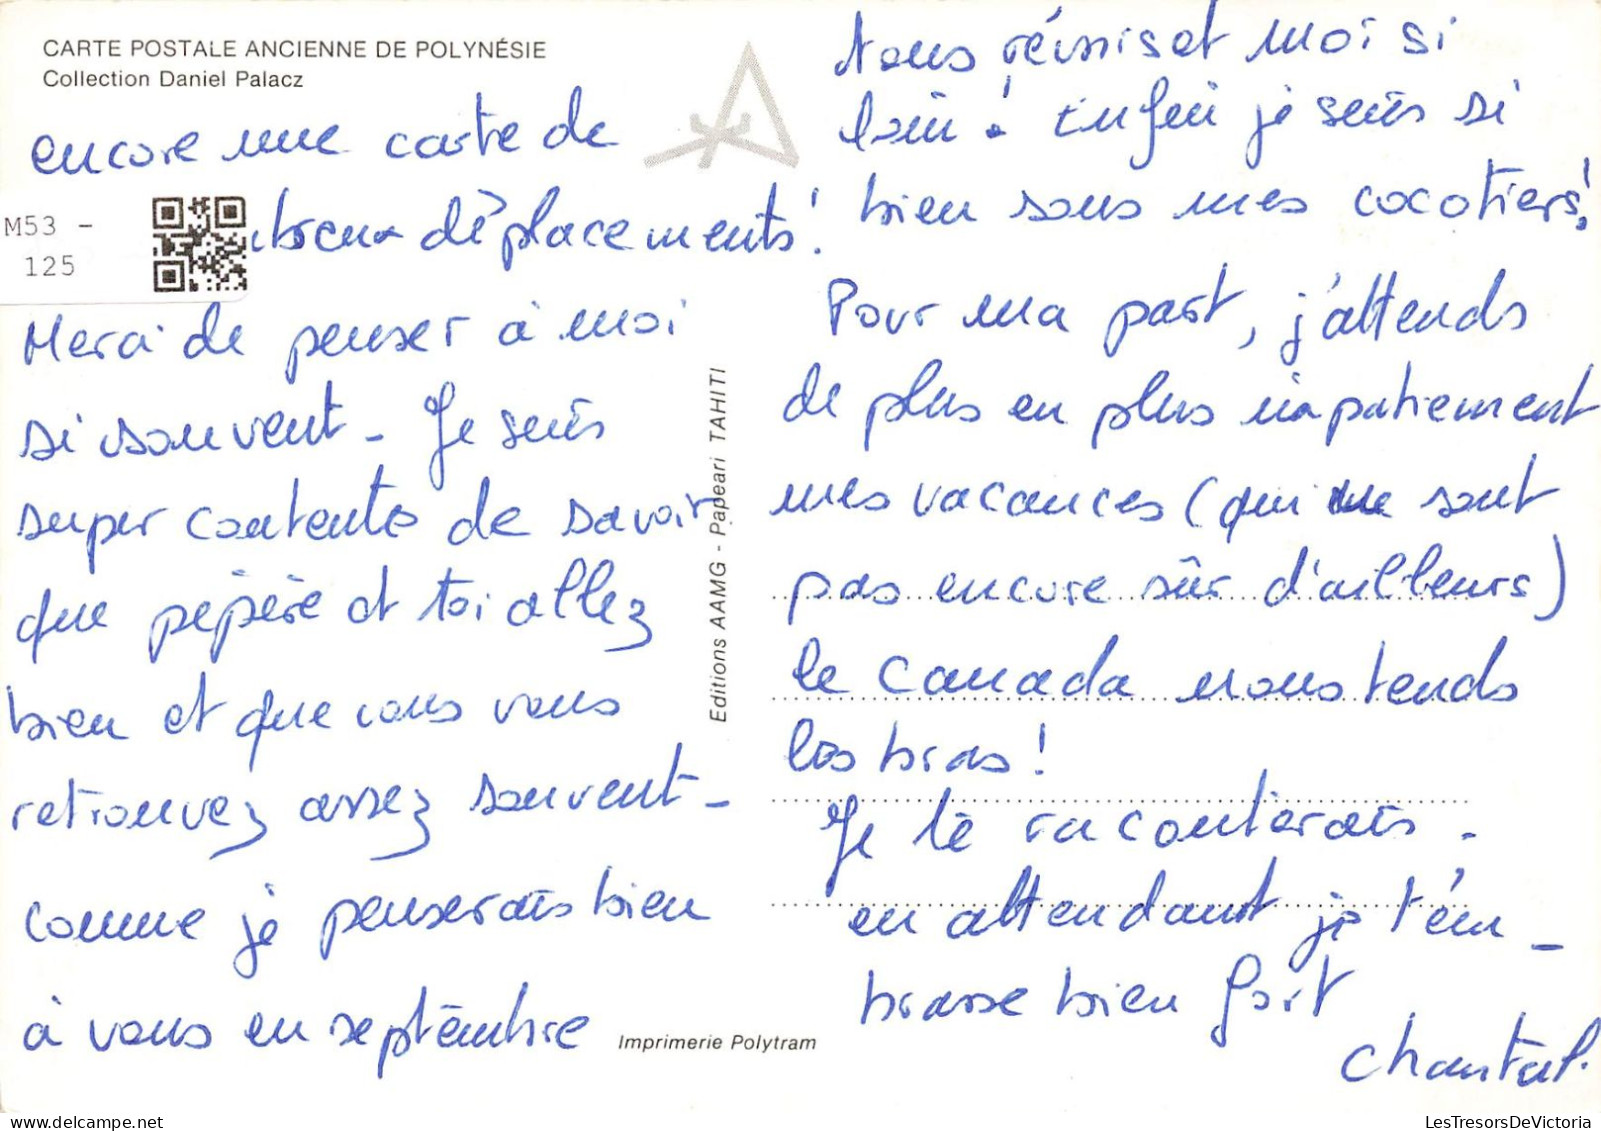 CARTE POSTALE ANCIENNE DE POLYNÉSIE
Collection Daniel Palacz
encore une carte de
breux déplacements!
M53 -
125
Merci de penser à moi
si souvent - Je suis
super contente de savoir
que pépère et toi allez
bien et que vous vous
retrouvez assez souvent -
comme je penserais bien
à vous en septembre
Editions AAMG - Papeari TAHITI
Imprimerie Polytram
tous réunis et moi si
loin! Enfin je suis si
bien sous mes cocotiers!
Pour ma part, j'attends
de plus en plus impatiement
mes vacances (qui ne sont
pas encore sûr d'ailleurs)
le Canada nous tends
les bras!
Je te raconterais -
en attendant je t'em -
brasse bien fort
Chantal.
LesTresorsDeVictoria